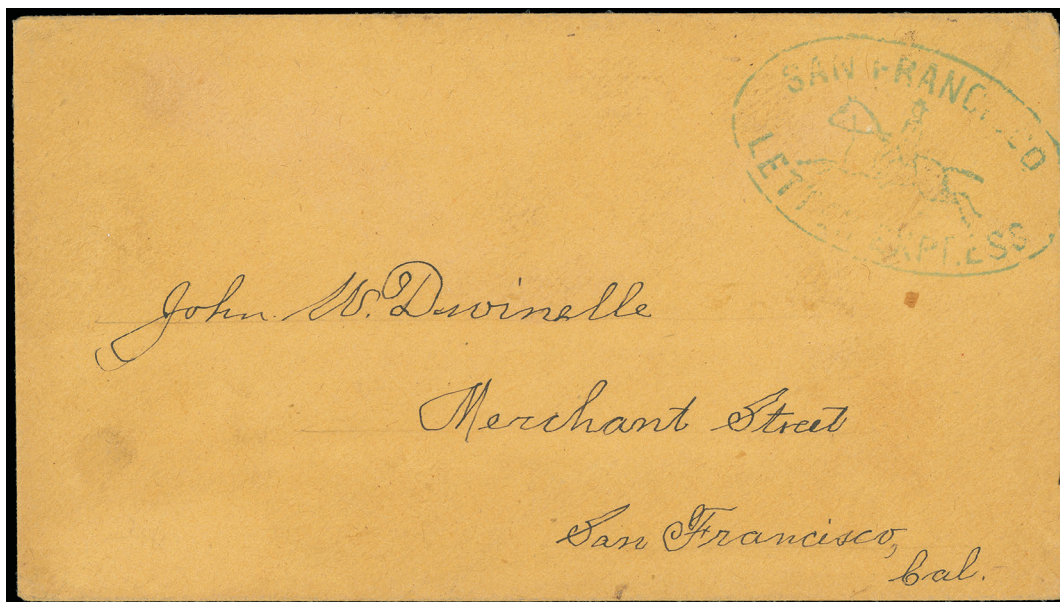 SAN FRANCISCO
LETTER EXPRESS
John W. Dwinelle
Merchant Street
San Francisco,
Cal.